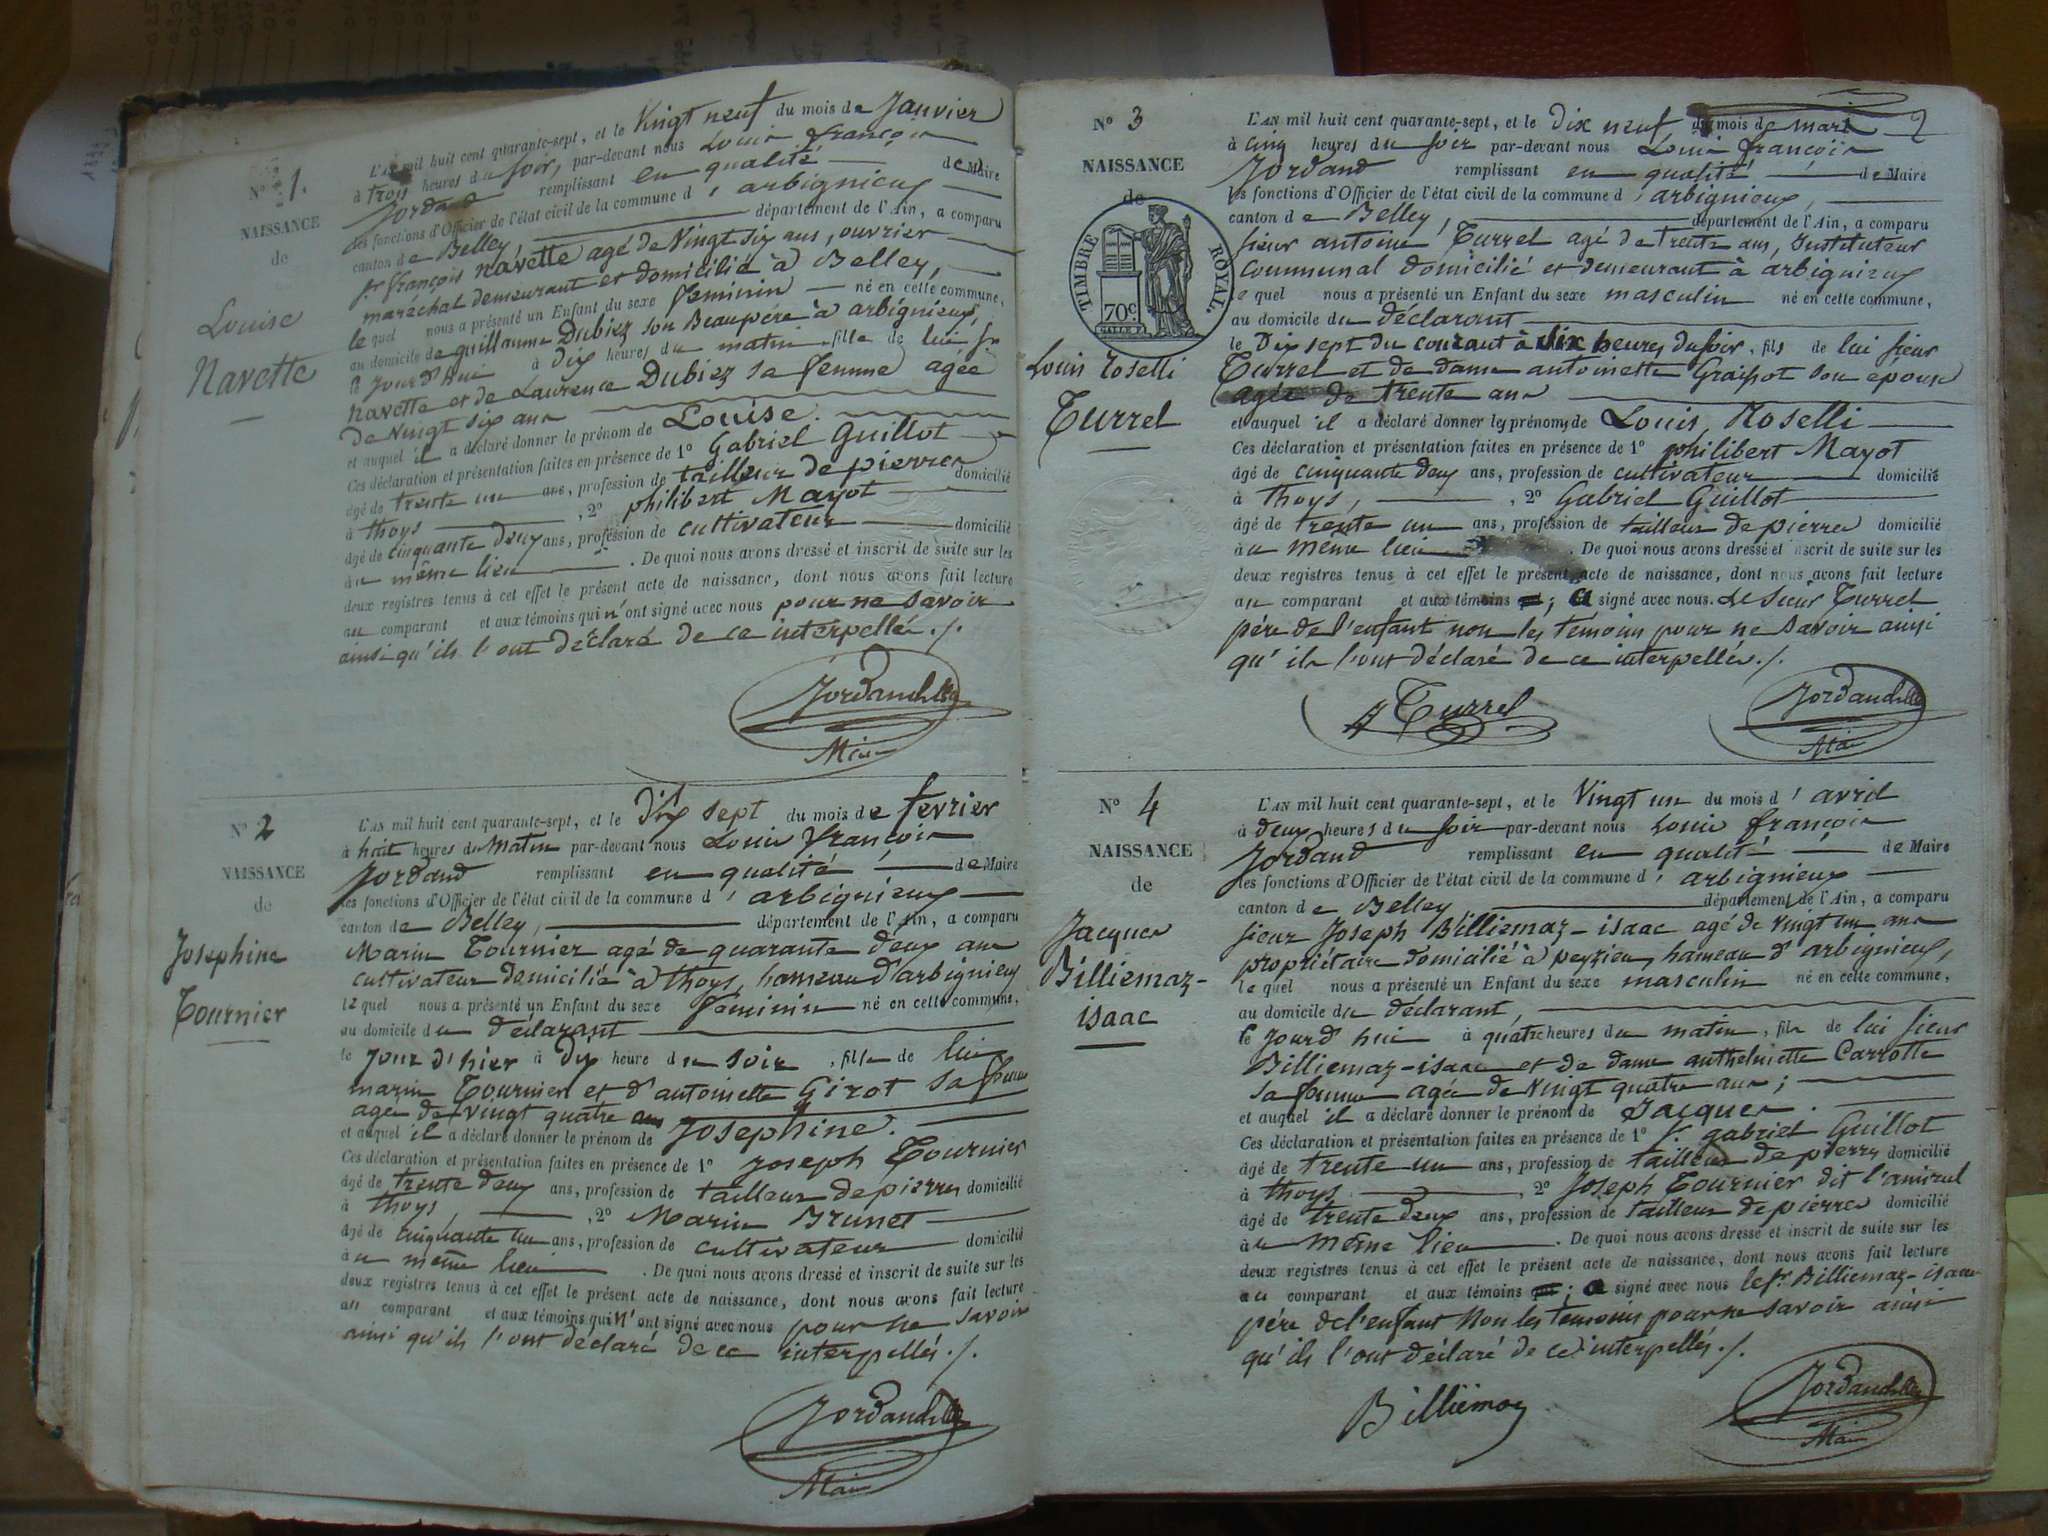 N° 1.
NAISSANCE
de
Louise
Navette
L'AN mil huit cent quarante-sept, et le Vingt neuf du mois de Janvier
à trois heures du soir, par-devant nous Louis françois
Jordand remplissant en qualité de Maire
les fonctions d'Officier de l'état civil de la commune d'arbignieux
canton de Belley, département de l'Ain, a comparu
sr françois Navette agé de Vingt six ans, ouvrier
maréchal demeurant et domicilié à Belley,
lequel nous a présenté un Enfant du sexe feminin né en cette commune,
au domicile de guillaume Dubiez son Beaupère à arbignieux,
le Jourd'hui à dix heures du matin, fille de lui sr
Navette et de Laurence Dubiez sa femme agée
de Vingt six ans
et auquel il a déclaré donner le prénom de Louise.
Ces déclaration et présentation faites en présence de 1° Gabriel Guillot
âgé de trente un ans, profession de tailleur de pierres domicilié
à thoys, 2° philibert Mayot
âgé de cinquante deux ans, profession de cultivateur domicilié
au même lieu. De quoi nous avons dressé et inscrit de suite sur les
deux registres tenus à cet effet le présent acte de naissance, dont nous avons fait lecture
au comparant et aux témoins qui n'ont signé avec nous pour ne savoir
ainsi qu'ils l'ont déclaré de ce interpellés./.
Maire
N° 2
NAISSANCE
de
Josephine
Tournier
L'AN mil huit cent quarante-sept, et le Dix sept du mois de fevrier
à huit heures du Matin par-devant nous Louis françois
Jordand remplissant en qualité de Maire
les fonctions d'Officier de l'état civil de la commune d'arbignieux
canton de Belley, département de l'Ain, a comparu
Marin Tournier agé de quarante deux ans
cultivateur domicilié à thoys, hameau d'arbignieux
lequel nous a présenté un Enfant du sexe feminin né en cette commune,
au domicile du déclarant
le jour d'hier à dix heure du soir, fille de lui
marin Tournier et d'antoinette Girot sa femme
agée de vingt quatre ans
et auquel il a déclaré donner le prénom de Josephine.
Ces déclaration et présentation faites en présence de 1° Joseph Tournier
âgé de trente deux ans, profession de tailleur de pierres domicilié
à thoys, 2° Marin Brunet
âgé de cinquante un ans, profession de cultivateur domicilié
au même lieu. De quoi nous avons dressé et inscrit de suite sur les
deux registres tenus à cet effet le présent acte de naissance, dont nous avons fait lecture
au comparant et aux témoins qui n'ont signé avec nous pour ne savoir
ainsi qu'ils l'ont déclaré de ce interpellés./.
Maire
2
N° 3
NAISSANCE
de
TIMBRE ROYAL.
70c
Louis Roselli
Turrel
L'AN mil huit cent quarante-sept, et le dix neuf du mois de mars
à cinq heures du soir par-devant nous Louis françois
Jordand remplissant en qualité de Maire
les fonctions d'Officier de l'état civil de la commune d'arbignieux,
canton de Belley, département de l'Ain, a comparu
sieur antoine Turrel agé de trente ans, Instituteur
communal domicilié et demeurant à arbignieux
lequel nous a présenté un Enfant du sexe masculin né en cette commune,
au domicile du déclarant
le Dix sept du courant à dix heures du soir, fils de lui sieur
Turrel et de dame antoinette Graissot son epouse
agée de trente ans
et auquel il a déclaré donner les prénoms de Louis, Roselli
Ces déclaration et présentation faites en présence de 1° philibert Mayot
âgé de cinquante deux ans, profession de cultivateur domicilié
à thoys, 2° Gabriel Guillot
âgé de trente un ans, profession de tailleur de pierres domicilié
au même lieu. De quoi nous avons dressé et inscrit de suite sur les
deux registres tenus à cet effet le présent acte de naissance, dont nous avons fait lecture
au comparant et aux témoins ; a signé avec nous. le sieur Turrel
père de l'enfant non les témoins pour ne savoir ainsi
qu'ils l'ont déclaré de ce interpellés./.
Turrel
Maire
N° 4
NAISSANCE
de
Jacques
Billiemaz-
isaac
L'AN mil huit cent quarante-sept, et le Vingt un du mois d'avril
à deux heures du soir par-devant nous Louis françois
Jordand remplissant en qualité de Maire
les fonctions d'Officier de l'état civil de la commune d'arbignieux
canton de Belley département de l'Ain, a comparu
sieur Joseph Billiemaz-isaac agé de vingt un ans
propriétaire domicilié à peyzieu, hameau d'arbignieux,
lequel nous a présenté un Enfant du sexe masculin né en cette commune,
au domicile du déclarant,
le Jourd'hui à quatre heures du matin, fils de lui sieur
Billiemaz-isaac et de dame anthelmette Carrotte
sa femme agée de Vingt quatre ans;
et auquel il a déclaré donner le prénom de Jacques.
Ces déclaration et présentation faites en présence de 1° sr gabriel Guillot
âgé de trente un ans, profession de tailleur de pierres domicilié
à thoys, 2° Joseph Tournier dit l'amiral
âgé de trente deux ans, profession de tailleur de pierres domicilié
au même lieu. De quoi nous avons dressé et inscrit de suite sur les
deux registres tenus à cet effet le présent acte de naissance, dont nous avons fait lecture
au comparant et aux témoins ; a signé avec nous le sr Billiemaz-isaac
père de l'enfant Non les temoins pour ne savoir ainsi
qu'ils l'ont déclaré de ce interpellés./.
Billiemaz
Maire